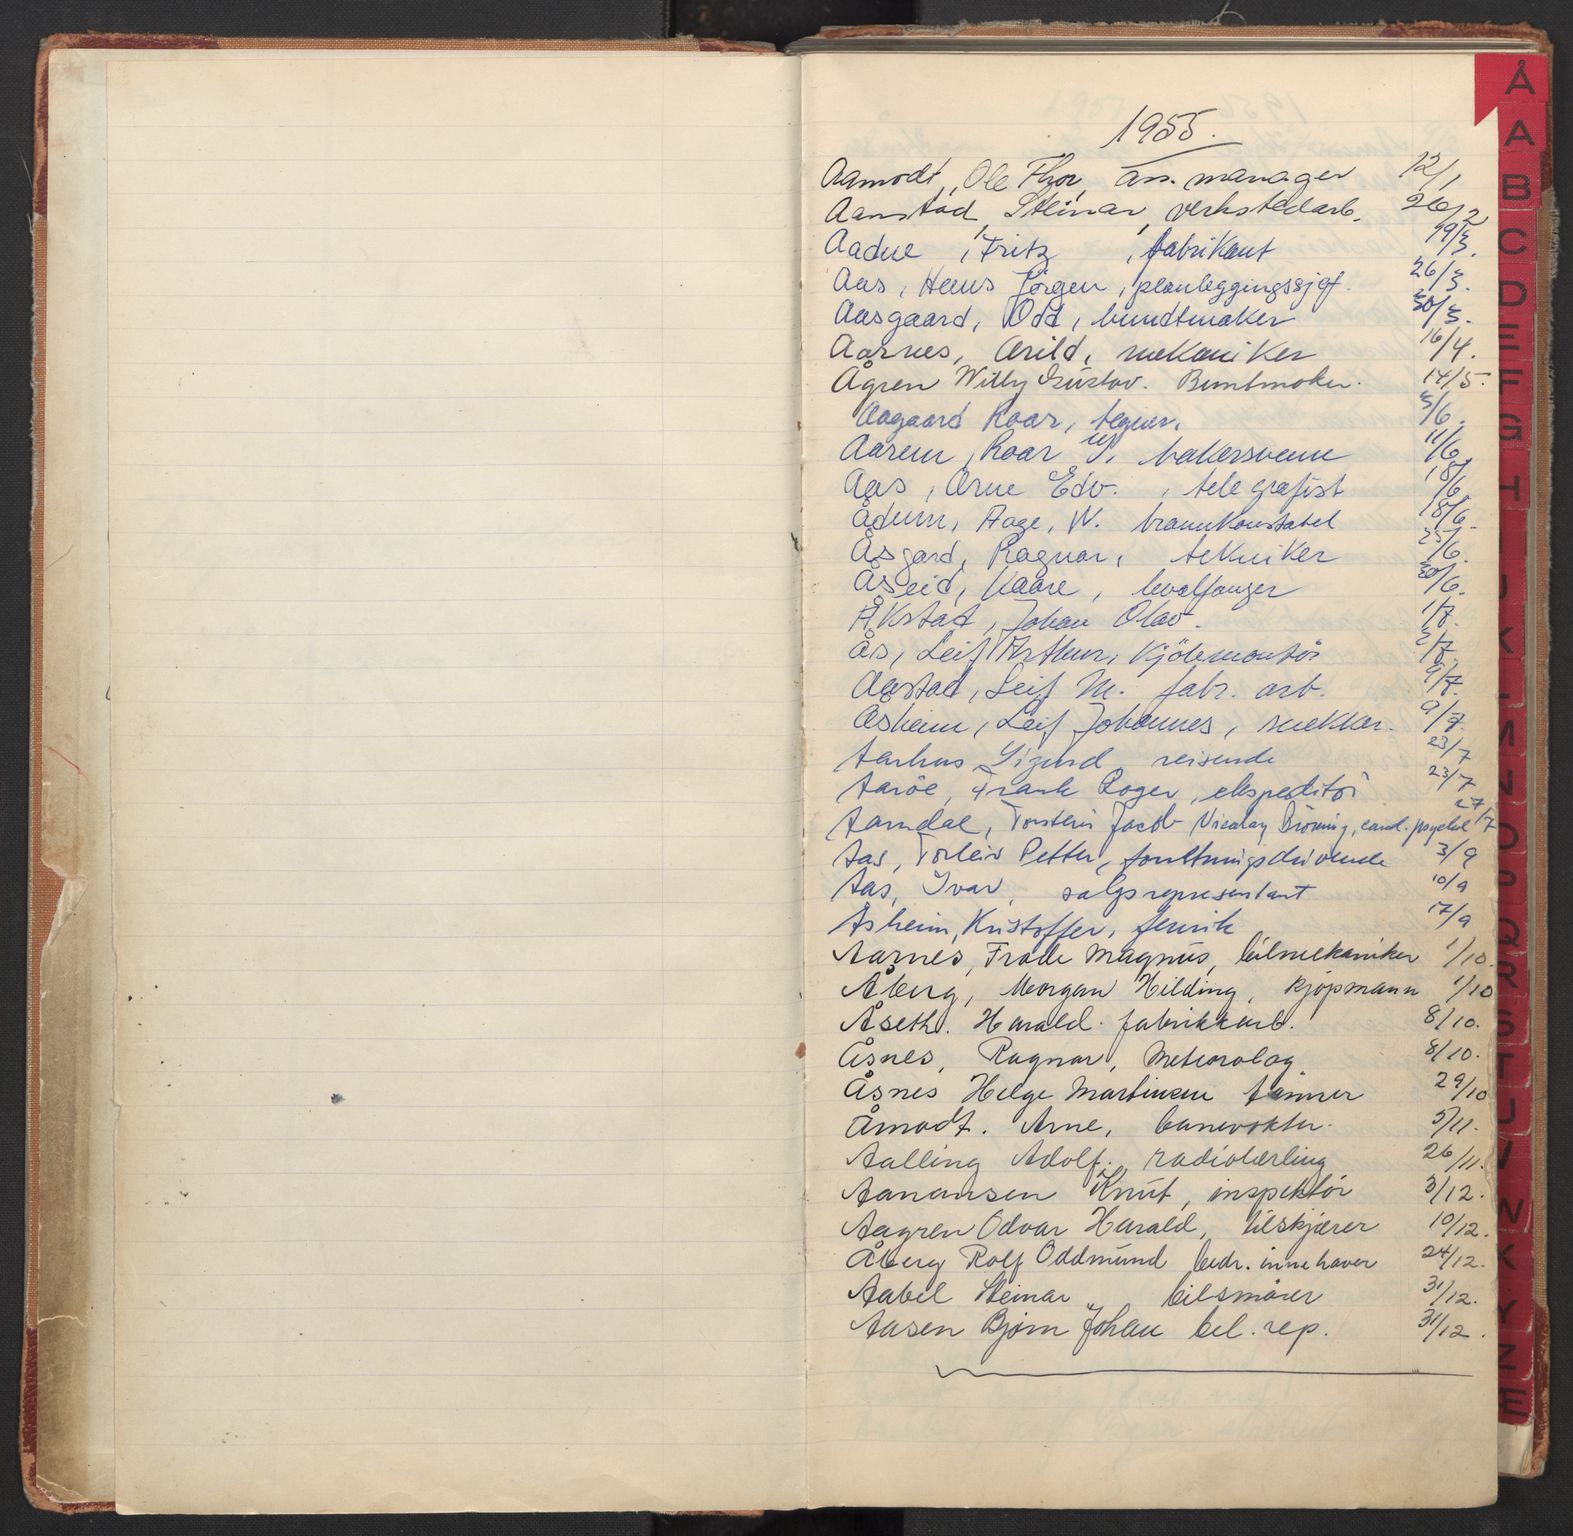 1955.
Aamodt, Ole Thor, ass. manager 12/1
Aamstad, Steinar, verkstedarb. 26/2
Aadne, Fritz, fabrikant 19/3.
Aas, Hans Jörgen, planleggingssjef. 26/3.
Aasgaard, Odd, bundtmaker 30/3.
Aarnes, Arild, mekaniker 16/4.
Ågren Willy Gustav. Buntmaker. 14/5.
Aagaard Roar, tegner. 3/6.
Aarem, Roar G, bakersvenn 11/6
Aas, Arne Edv., telegrafist 18/6.
Ådum, Aage, W. brannkonstabel 18/6.
Åsgard, Ragnar, tekniker 25/6.
Åseid, Kaare, hvalfanger 30/6.
Åkstad, Johan Olav. 1/7.
Ås, Leif Arthur, Kjölemontör 2/7.
Aastad, Leif M. fabr. arb. 9/7.
Åsheim, Leif Johannes, snekker. 9/7.
Aarhus Sigurd, reisende 23/7
Aaröe, Frank Roger, ekspeditör 23/7
Aamdal, Torstein Jacob Nicolay Bröning, cand. psychol 27/7
Aas, Torleiv Petter, forretningsdrivende 3/9
Aas, Ivar, salgsrepresentant 10/9
Åsheim, Kristoffer, fenrik 17/9
Aarnes, Frode Magnus, bilmekaniker 1/10.
Åberg, Morgan Hilding, kjöpmann 1/10
Åseth. Harald. fabrikkarb. 8/10.
Åsnes, Ragnar, Meteorolog. 8/10.
Åsnes Helge Martinsen tömmer 29/10
Åmodt. Arne, banevokter. 5/11.
Aalling Adolf, radiolærling 26/11.
Aanonsen Knut, inspektör 3/12.
Aagren Odvar Harald, tilskjærer 10/12.
Åberg Rolf Oddmund bedr. innehaver 24/12.
Aabel Steinar, bilsmörer 31/12.
Aasen Bjørn Johan bil. rep. 31/12.
Å
A
B
C
D
E
F
G
H
I
J
K
L
M
N
O
P
Q
R
S
T
U
V
W
X
Y
Z
Æ